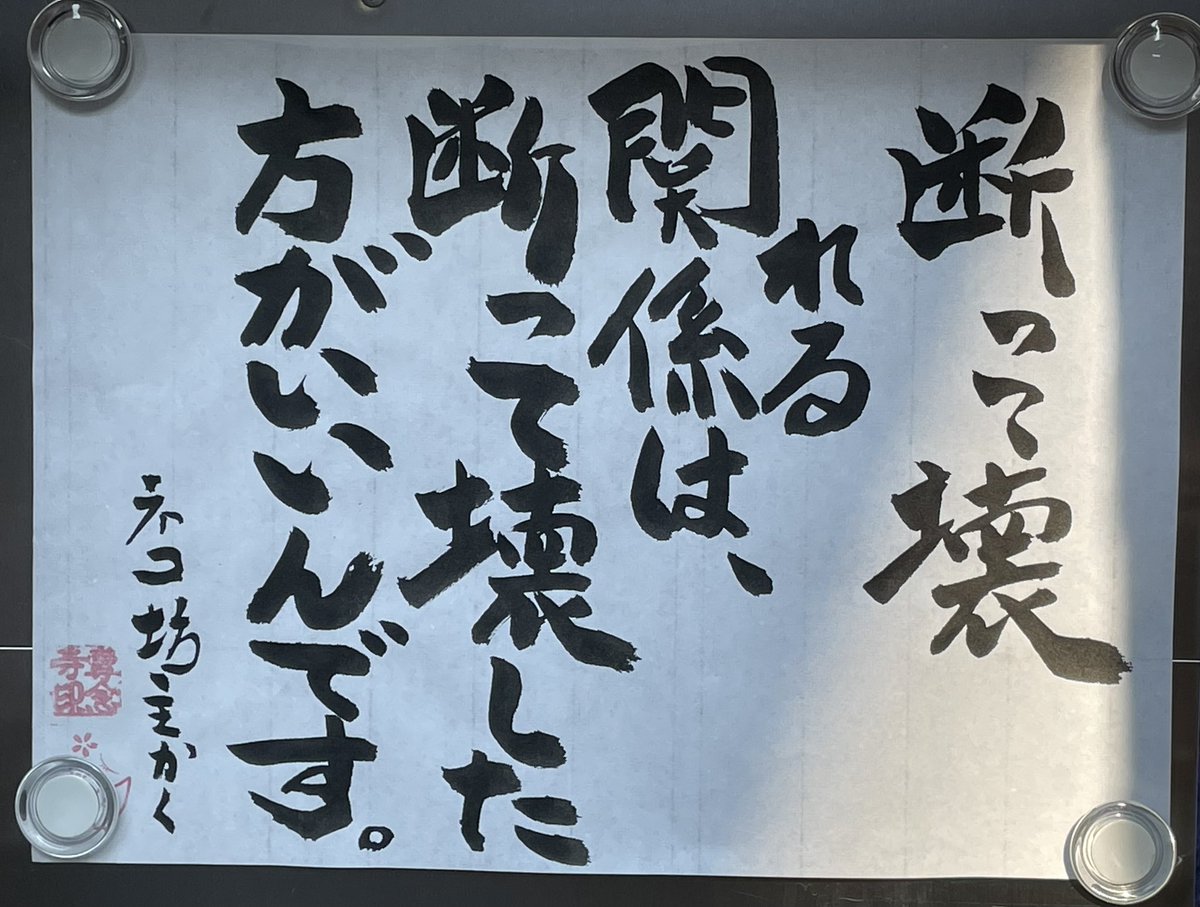 断って壊
れる
関係は、
断って壊した
方がいいんです。
ネコ坊主かく
尊念
寺印